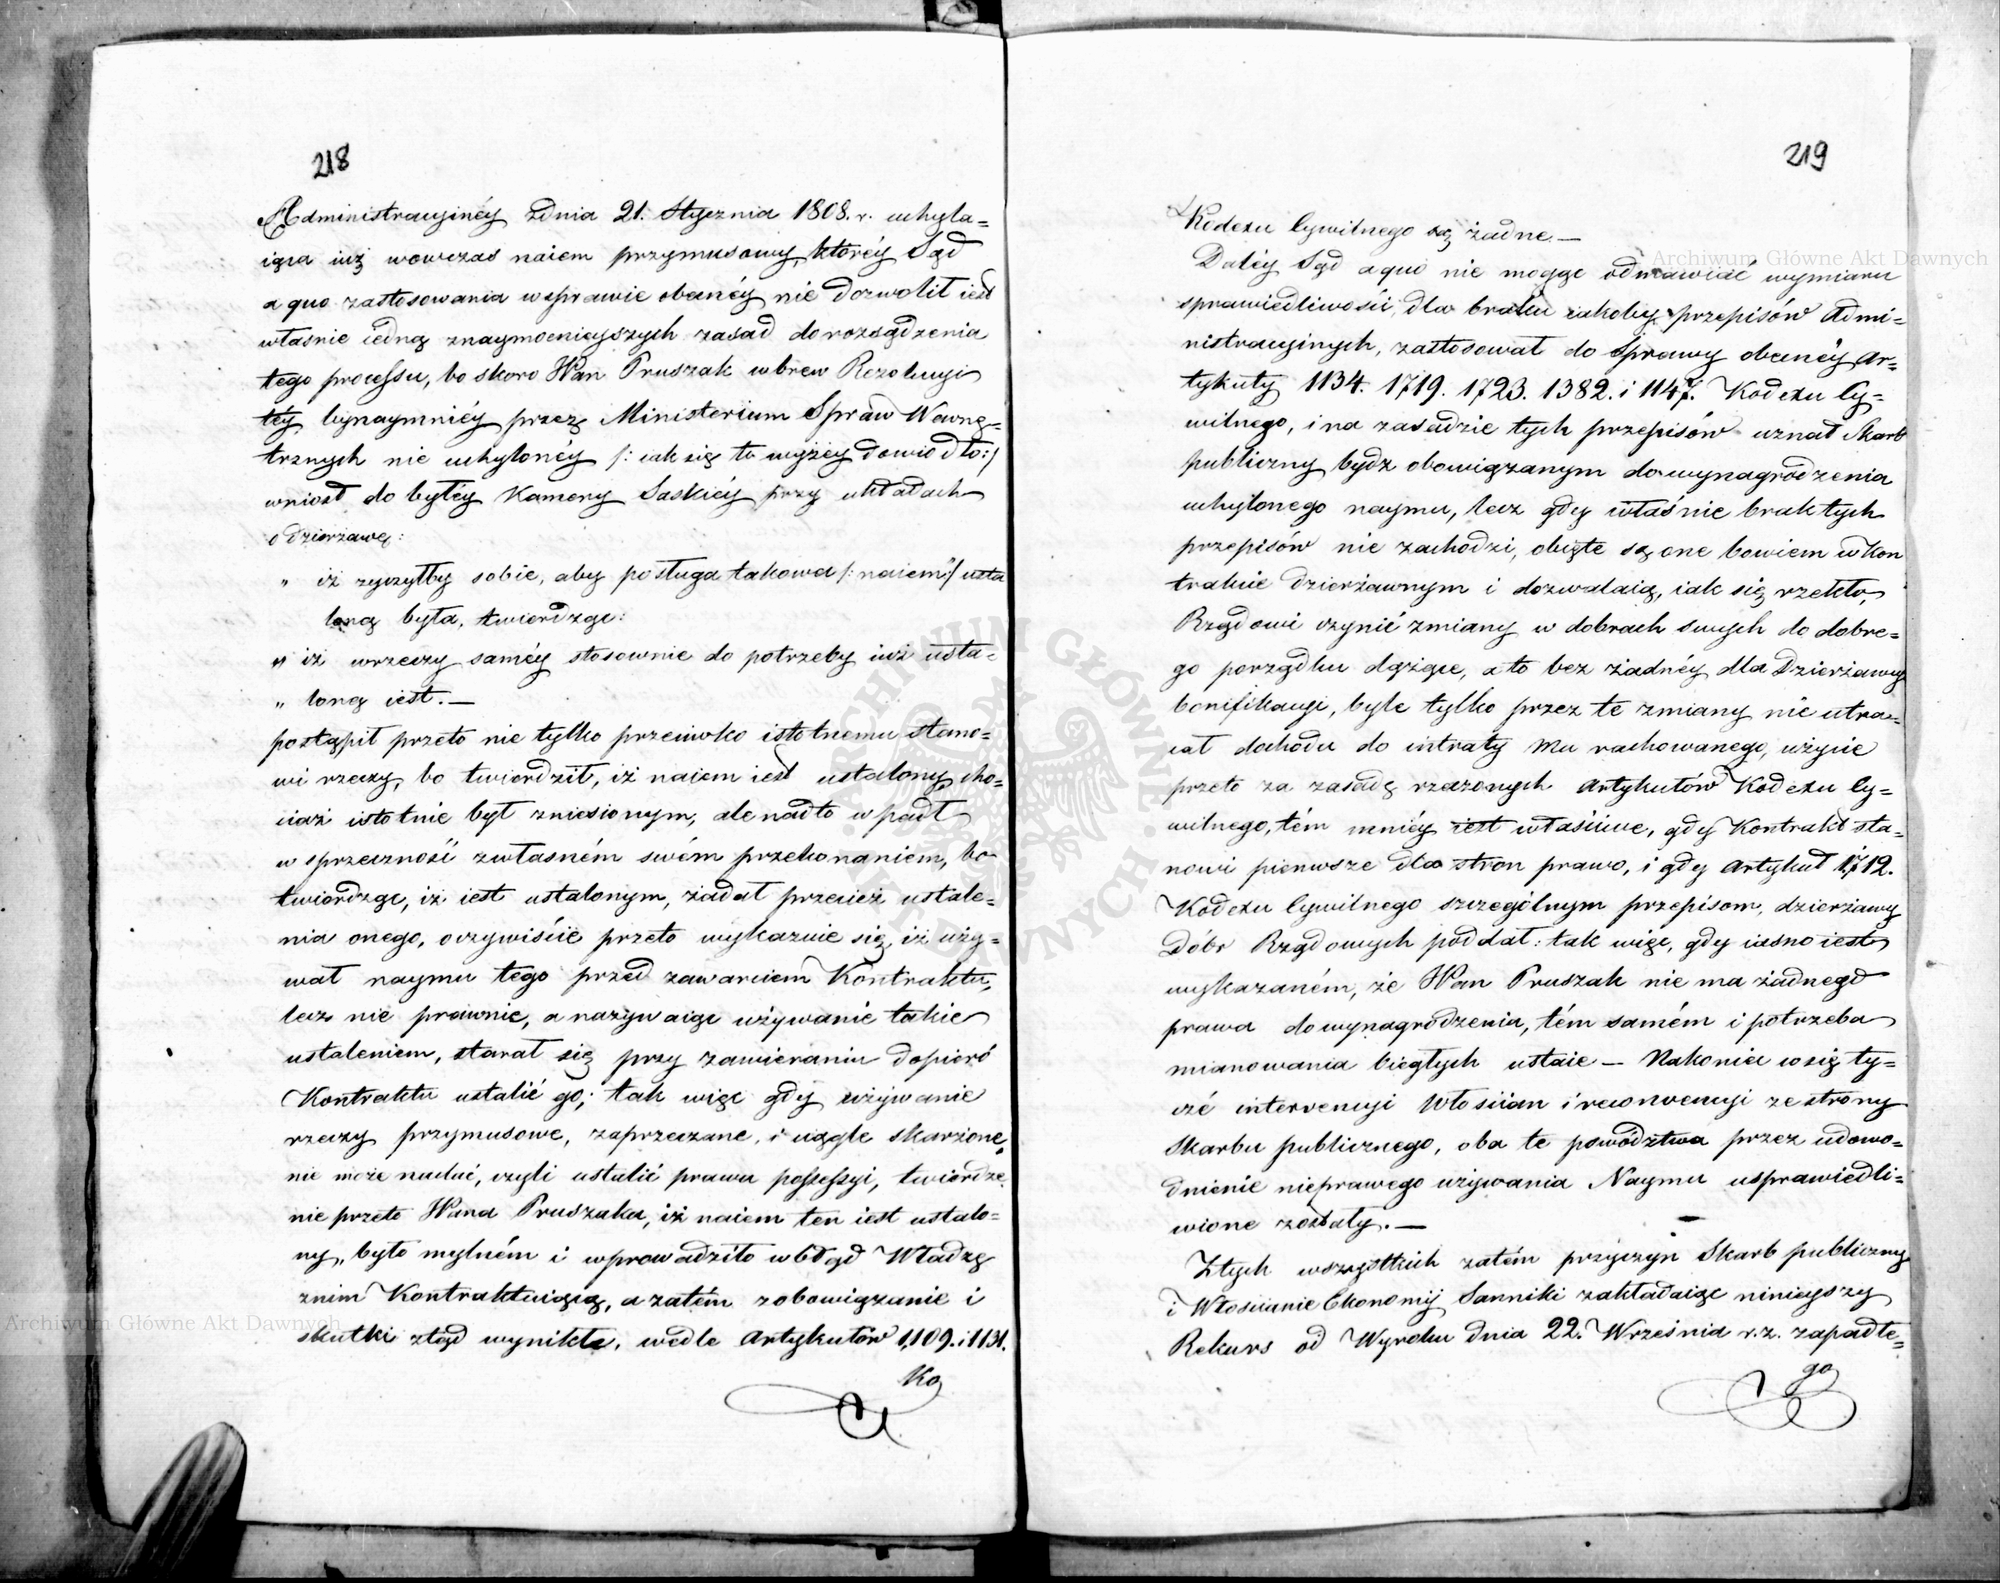 218
Administracyinéy zdnia 21. Stycznia 1808. r. uchyla=
iąca iuż wowczas naiem przymusowy, któréy Sąd
a quo zastosowania wsprawie obecnéy nie dozwolił iest
własnie iedną znaymocnieyszych zasad do rozsądzenia
tego processu, bo skoro Wan Pruszak wbrew Rezolucyi
téy bynaymniéy przez Ministerium Spraw Wewnę=
trznych nie uchylonéy /: iak się to wyżéy dowiodło :/
wniosł do byłéy Kamery Saskiéy przy układach
o dzierżawę:
„ iż życzyłby sobie, aby posługa takowa /: naiem :/ usta
loną była, twierdząc:
„ iż wrzeczy saméy stosownie do potrzeby iuż usta=
„ loną iest. —
postąpił przeto nie tylko przeciwko istotnemu stano=
wi rzeczy, bo twierdził, iż naiem iest ustalony, cho=
ciaż istotnie był zniesionym, ale nadto wpadł
w sprzeczność zwłasném swém przekonaniem, bo
twierdząc, iż iest ustalonym, żądał przecież ustale=
nia onego, oczywiście przeto wykazuie się, iż uży=
wał naymu tego przed zawarciem Kontraktu,
lecz nie prawnie, a nazywaiąc używanie takie
ustaleniem, starał się przy zawieraniu dopiéro
Kontraktu ustalić go; tak więc gdy używanie
rzeczy przymusowe, zaprzeczane, i ciągle skarżone,
nie może nadać, czyli ustalić prawa possessyi, twierdze
nie przeto Wana Pruszaka, iż naiem ten iest ustalo=
ny, było mylném i wprowadziło wbłąd Władzę
znim Kontraktuiącą, a zatém zobowiązanie i
skutki ztąd wynikłe, wedle Artykułów 1,109. i 1131.
Ko
219
Kodexu Cywilnego są żadne. —
Daléy Sąd a quo nie mogąc odmawiać wymiaru
sprawiedliwości, dla braku iakoby przepisów Admi=
nistracyinych, zastosował do Sprawy obecnéy Ar=
tykuły 1134. 1719. 1723. 1382. i 1147. Kodexu Cy=
wilnego, i na zasadzie tych przepisów uznał Skarb
publiczny bydź obowiązanym do wynagrodzenia
uchylonego naymu, lecz gdy właśnie brak tych
przepisów nie zachodzi, obięte są one bowiem w Kon
trakcie dzierżawnym i dozwalaią, iak się rzekło,
Rządowi czynić zmiany w dobrach swych do dobre=
go porządku dążące, a to bez żadnéy dla Dzierżawcy
bonifikacyi, byle tylko przez te zmiany nie utra=
cał dochodu do intraty Mu rachowanego, użycie
przeto za zasadę rzeczonych Artykułów Kodexu Cy=
wilnego, tém mniéy iest właściwe, gdy Kontrakt sta=
nowi pierwsze dla stron prawo, i gdy Artykuł 1712.
Kodexu Cywilnego szczególnym przepisom, dzierżawy
Dóbr Rządowych poddał: tak więc, gdy iasno iest
wykazaném, że Wan Pruszak nie ma żadnego
prawa do wynagrodzenia, tém samém i potrzeba
mianowania biegłych ustaie — Nakoniec co się ty=
czé intervencyi Włościan i reconvencyi ze strony
Skarbu publicznego, oba te powództwa przez udowo=
dnienie nieprawego używania Naymu usprawiedli=
wione zostały. —
Ztych wszystkich zatém przyczyn Skarb publiczny
i Włościanie Ekonomij Sanniki zakładaiąc ninieyszy
Rekurs od Wyroku dnia 22. Września r. z. zapadłe=
go
Archiwum Główne Akt Dawnych
Archiwum Główne Akt Dawnych
ARCHIWUM GŁÓWNE AKT DAWNYCH